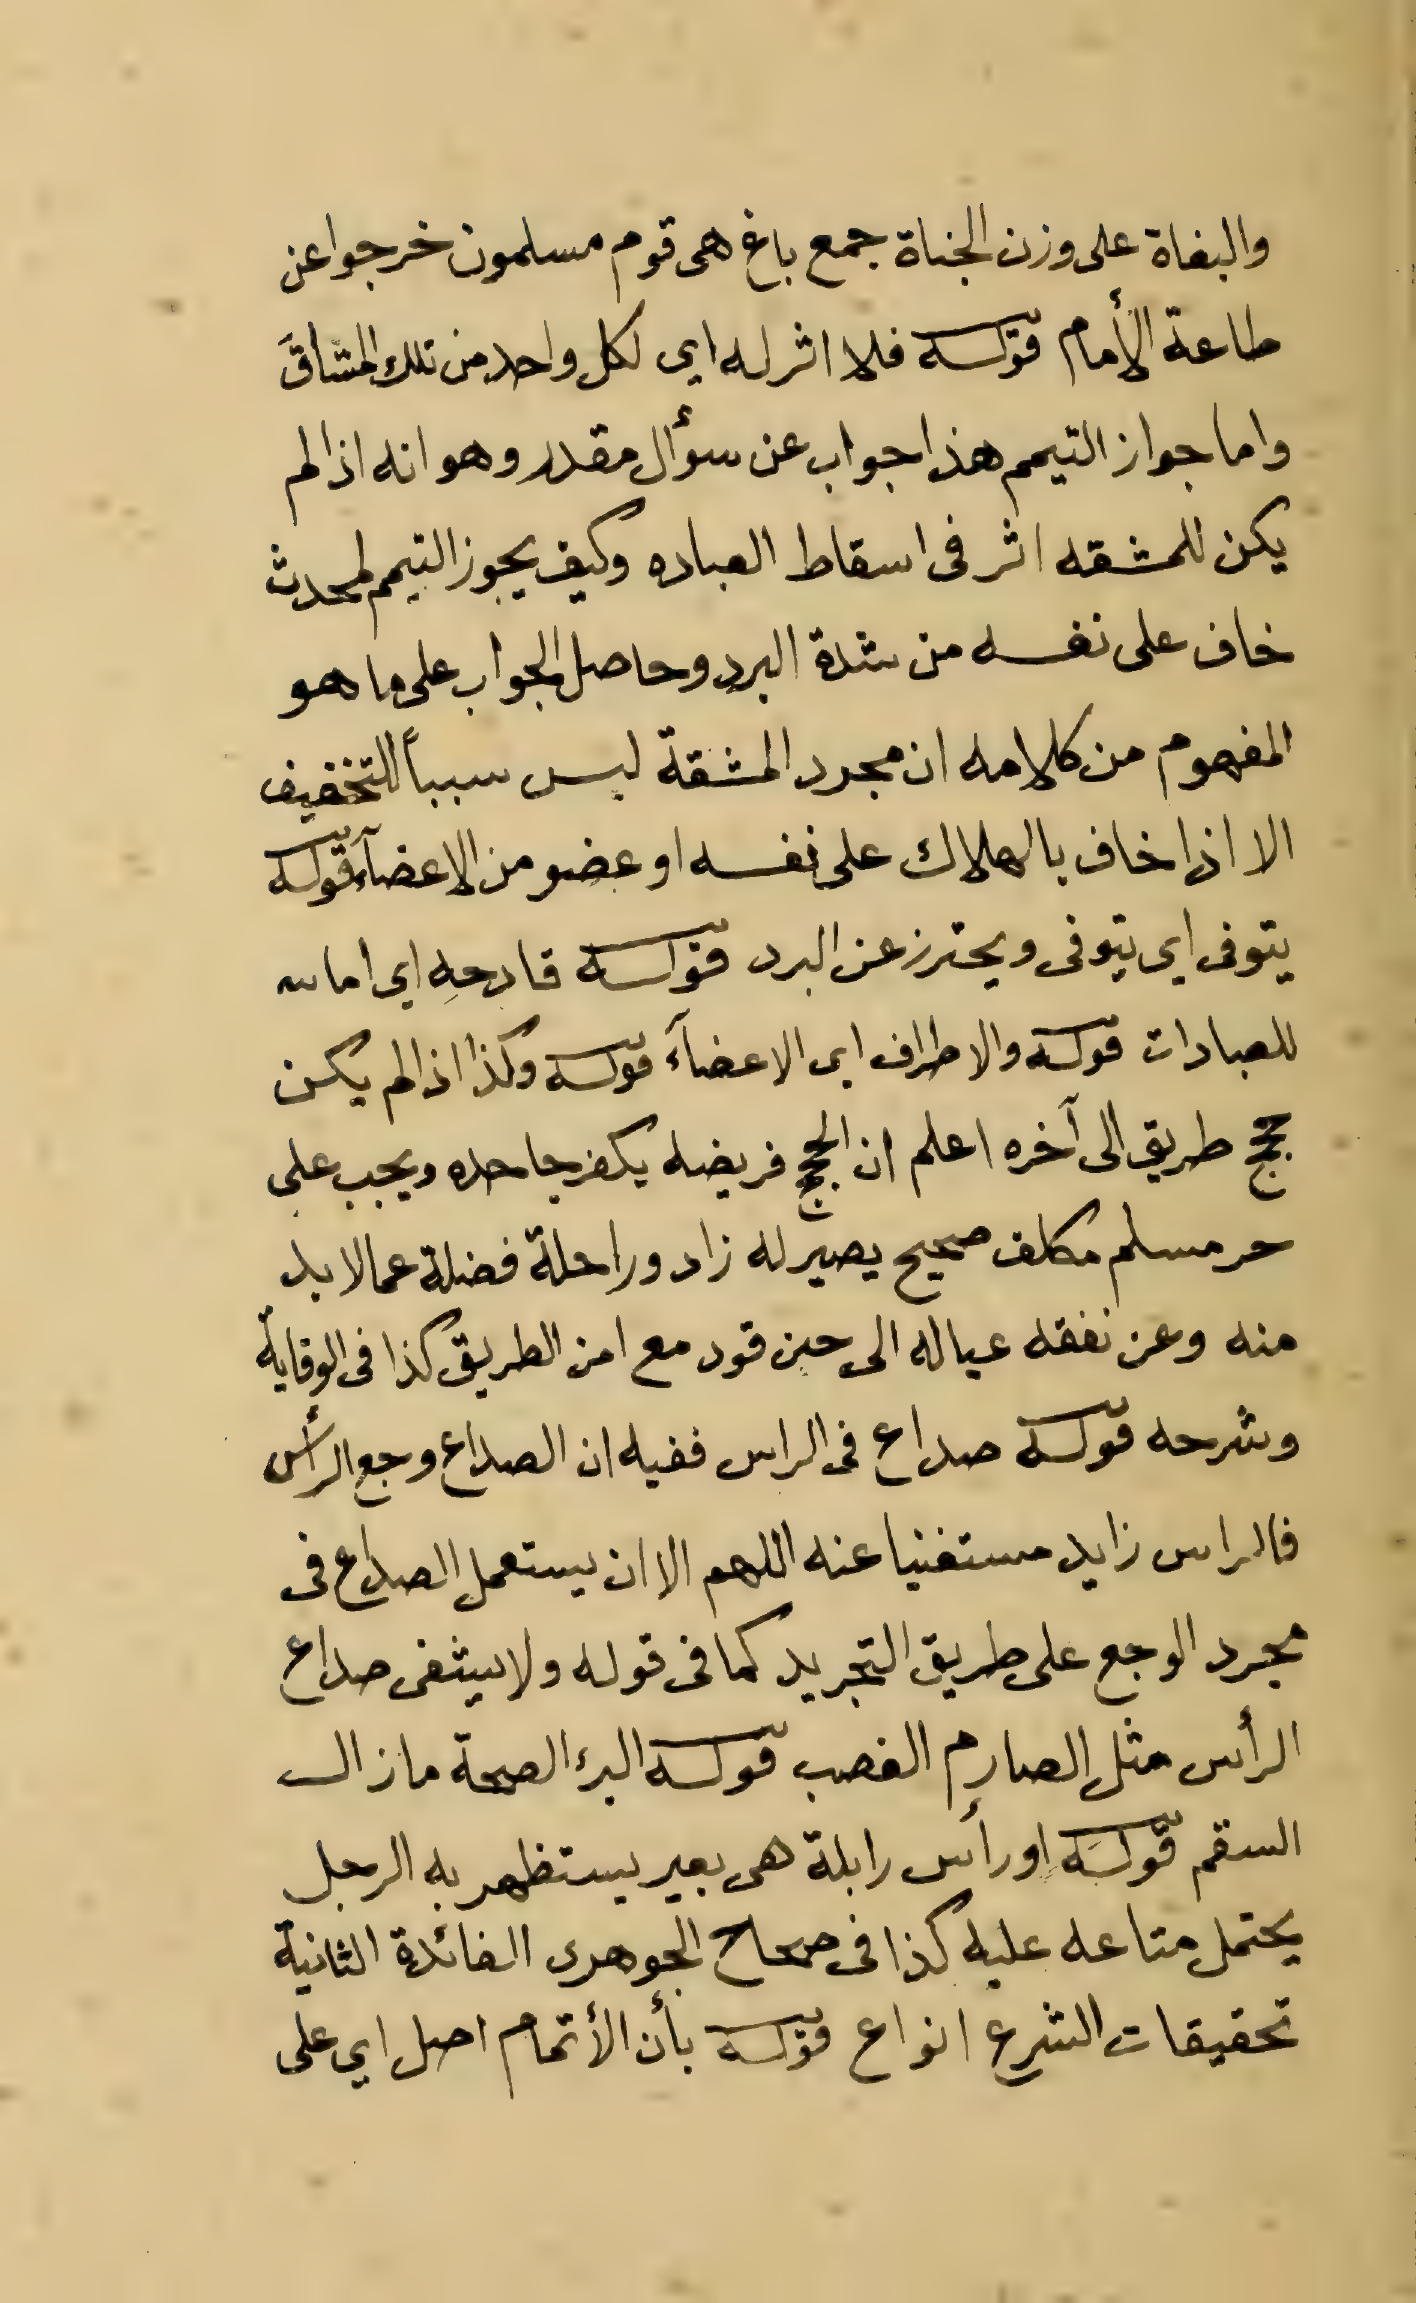 والبغاة على وزن الجناة جمع باغ هى قوم مسلمون خرجوا عن
طاعة الأمام قوله فلا اثر له اى لكل واحد من تلك المشاق
واما جواز التيمم هذا جواب عن سؤال مقدر وهو انه اذا لم
يكن للمشقه اثر فى اسقاط العباده وكيف يجوز التيمم لمحدث
خاف على نفسه من شدة البرد وحاصل الجواب على ما هو
المفهوم من كلامه ان مجرد المشقة ليس سبباً للتخفيف
الا اذا خاف بالهلاك على نفسه او عضو من الاعضآء قوله
يتوفى اى يتوفى ويحترز عن البرد قوله قادحهِ اى
للعبادات قوله والاطراف اى الاعضآء قوله وكذا اذا لم يكن
حج طريق الى آخره اعلم ان الحج فريضه يكفر جاحده ويجب على
حر مسلم مكلف صحيح يصير له زاد وراحلة فضلة عما لا بد
منه وعن نفقه عياله الى حين قود مع امن الطريق كذا فى الوقاية
وشرحه قوله صداع فى الراس ففيه ان الصداع وجع الرأس
فالراس زايد مستغنيا عنه اللهم الا ان يستعمل الصداع فى
مجرد الوجع على طريق التجريد كما فى قوله ولا يشفى صداع
الرأس مثل الصارم الغصب قوله البرء الصحة ما زال
السقم قوله اورأس رابلة هى بعير يستظهر به الرجل
يحتمل متاعه عليه كذا فى صحاح الجوهرى الفائدة الثانية
تحقيقات الشرع انواع قوله بأن الأتمام اصل اي على